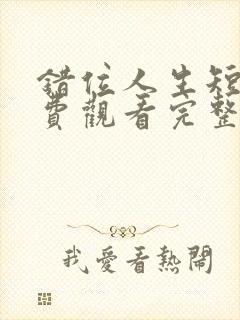 錯位人生短
費觀看完整
我愛看熱鬧